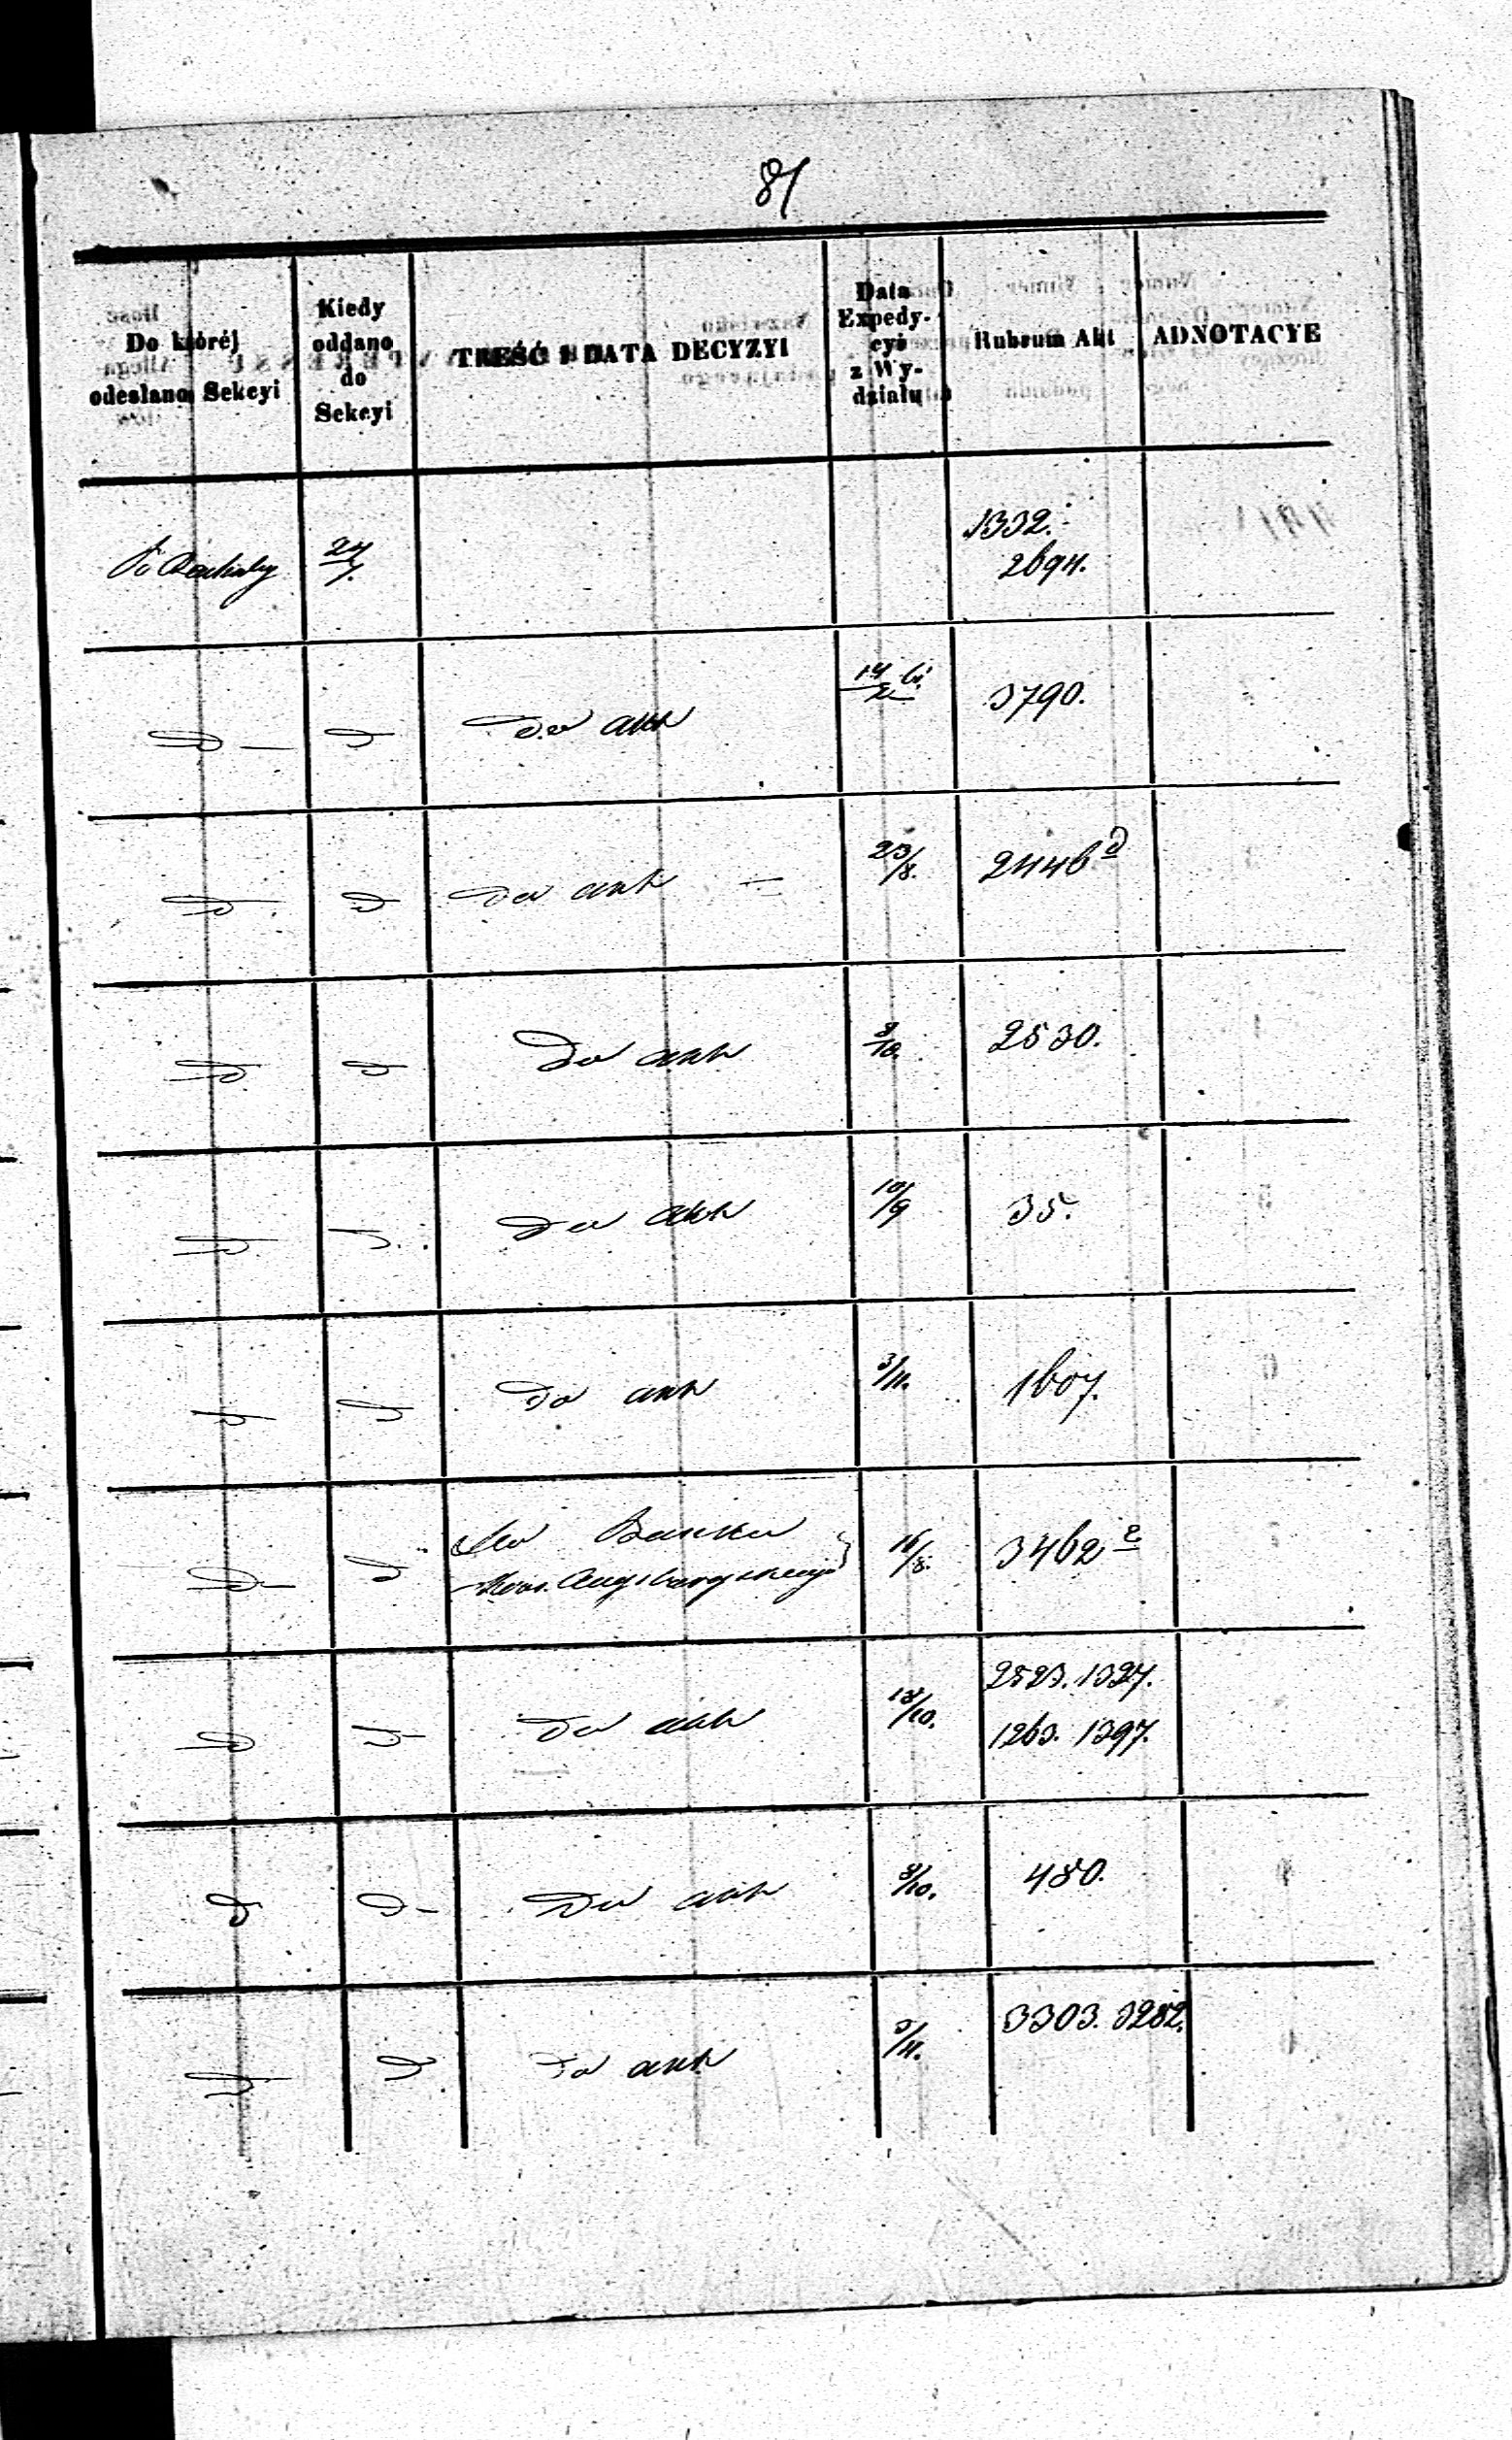 81
Do któréj odesłano Sekcyi
Kiedy oddano do Sekcyi
TREŚĆ I DATA DECYZYI
Data Expedycyi z Wydziału
Rubrum Akt
ADNOTACYE
24/7. 1332.
2694.
D — D do akt 14/X 3790.
D D do akt 23/8. 2446 d
D D Do akt 8/10. 2530.
D D. do akt 10/9 35.
D D do akt 3/11. 1607.
D — D Do Banku 16/8. 3462 e
D D — do akt 18/10. 2523. 1327.
1263. 1397.
D D — Do akt 8/10. 480.
D D do akt 5/11. 3303. 3282.